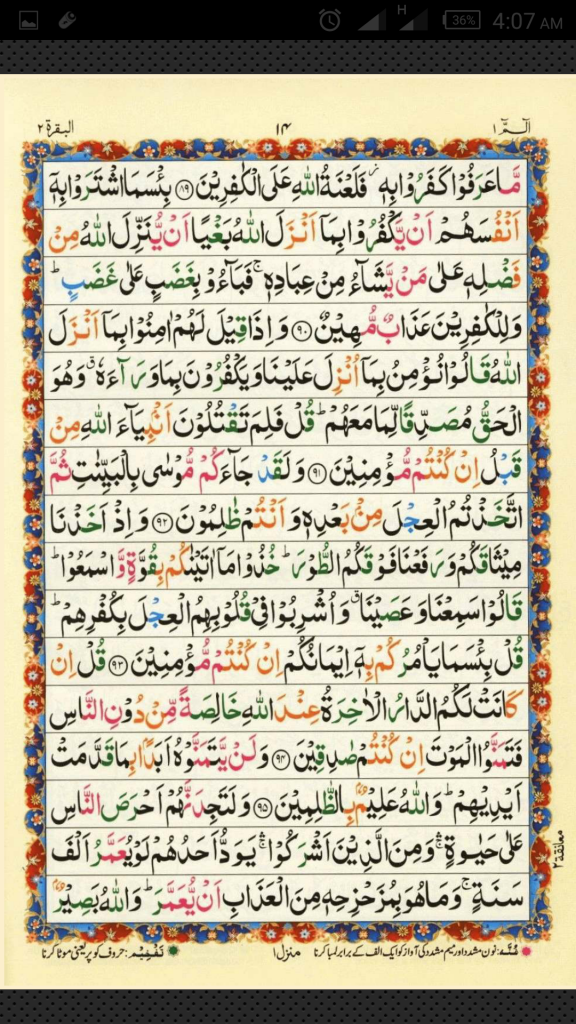 H 36% 4:07 AM
الٓمّٓ ١ ١٤ البقرة ٢
مَّا عَرَفُوْا كَفَرُوْا بِهٖ ز فَلَعْنَةُ اللّٰهِ عَلَى الْكٰفِرِيْنَ ﴿٨٩﴾ بِئْسَمَا اشْتَرَوْا بِهٖٓ
اَنْفُسَهُمْ اَنْ يَّكْفُرُوْا بِمَآ اَنْزَلَ اللّٰهُ بَغْيًا اَنْ يُّنَزِّلَ اللّٰهُ مِنْ
فَضْلِهٖ عَلٰى مَنْ يَّشَآءُ مِنْ عِبَادِهٖ ۚ فَبَآءُوْ بِغَضَبٍ عَلٰى غَضَبٍ ؕ
وَلِلْكٰفِرِيْنَ عَذَابٌ مُّهِيْنٌ ﴿٩٠﴾ وَاِذَا قِيْلَ لَهُمْ اٰمِنُوْا بِمَآ اَنْزَلَ
اللّٰهُ قَالُوْا نُؤْمِنُ بِمَآ اُنْزِلَ عَلَيْنَا وَيَكْفُرُوْنَ بِمَا وَرَآءَهٗ ق وَهُوَ
الْحَقُّ مُصَدِّقًا لِّمَا مَعَهُمْ ؕ قُلْ فَلِمَ تَقْتُلُوْنَ اَنْۢبِيَآءَ اللّٰهِ مِنْ
قَبْلُ اِنْ كُنْتُمْ مُّؤْمِنِيْنَ ﴿٩١﴾ وَلَقَدْ جَآءَكُمْ مُّوْسٰى بِالْبَيِّنٰتِ ثُمَّ
اتَّخَذْتُمُ الْعِجْلَ مِنْۢ بَعْدِهٖ وَاَنْتُمْ ظٰلِمُوْنَ ﴿٩٢﴾ وَاِذْ اَخَذْنَا
مِيْثَاقَكُمْ وَرَفَعْنَا فَوْقَكُمُ الطُّوْرَ ؕ خُذُوْا مَآ اٰتَيْنٰكُمْ بِقُوَّةٍ وَّاسْمَعُوْا ؕ
قَالُوْا سَمِعْنَا وَعَصَيْنَا ق وَاُشْرِبُوْا فِيْ قُلُوْبِهِمُ الْعِجْلَ بِكُفْرِهِمْ ؕ
قُلْ بِئْسَمَا يَاْمُرُكُمْ بِهٖٓ اِيْمَانُكُمْ اِنْ كُنْتُمْ مُّؤْمِنِيْنَ ﴿٩٣﴾ قُلْ اِنْ
كَانَتْ لَكُمُ الدَّارُ الْاٰخِرَةُ عِنْدَ اللّٰهِ خَالِصَةً مِّنْ دُوْنِ النَّاسِ
فَتَمَنَّوُا الْمَوْتَ اِنْ كُنْتُمْ صٰدِقِيْنَ ﴿٩٤﴾ وَلَنْ يَّتَمَنَّوْهُ اَبَدًۢا بِمَا قَدَّمَتْ
اَيْدِيْهِمْ ؕ وَاللّٰهُ عَلِيْمٌۢ بِالظّٰلِمِيْنَ ﴿٩٥﴾ وَلَتَجِدَنَّهُمْ اَحْرَصَ النَّاسِ
عَلٰى حَيٰوةٍ ۛۚ وَمِنَ الَّذِيْنَ اَشْرَكُوْا ۛۚ يَوَدُّ اَحَدُهُمْ لَوْ يُعَمَّرُ اَلْفَ
سَنَةٍ ۚ وَمَا هُوَ بِمُزَحْزِحِهٖ مِنَ الْعَذَابِ اَنْ يُّعَمَّرَ ؕ وَاللّٰهُ بَصِيْرٌۢ
معانقة ٢
غُنَّه: نون مشدد اور میم مشدد کی آواز کو ایک الف کے برابر لمبا کرنا منزل ۱ تَفْخِیْم: حروف کو پُر یعنی موٹا کرنا